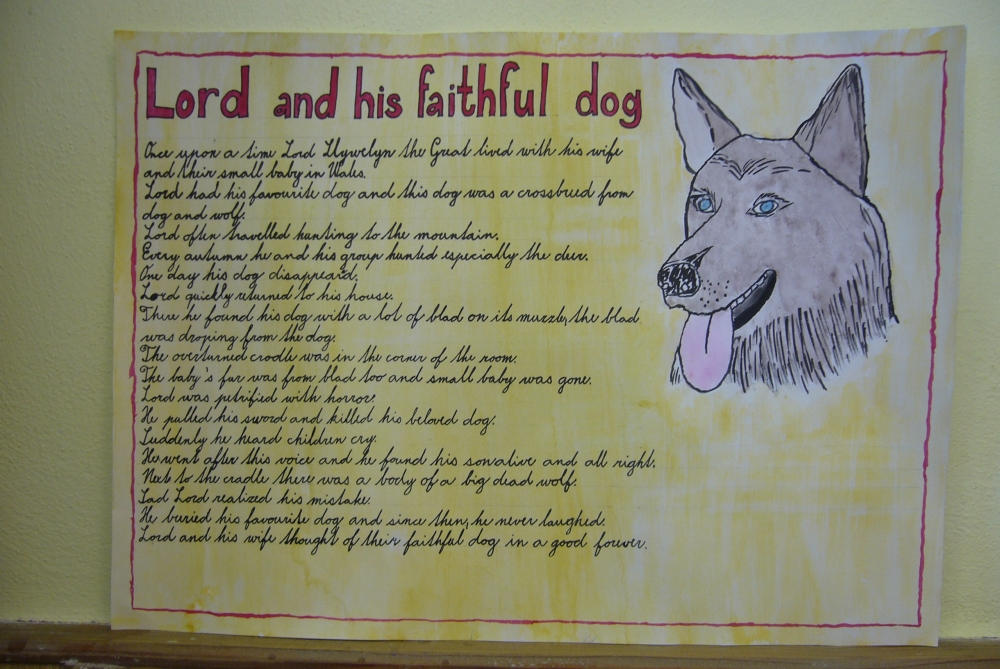 Lord and his faithful dog
Once upon a time Lord Llywelyn the Great lived with his wife
and their small baby in Wales.
Lord had his favourite dog and this dog was a crossbreed from
dog and wolf.
Lord often travelled hunting to the mountain.
Every autumn he and his group hunted especially the deer.
One day his dog disappeard.
Lord quickly returned to his house.
There he found his dog with a lot of blad on its muzzle, the blad
was droping from the dog.
The overturned cradle was in the corner of the room.
The baby's fur was from blad too and small baby was gone.
Lord was petrified with horror.
He pulled his sword and killed his beloved dog.
Suddenly he heard children cry.
He went after this voice and he found his son alive and all right.
Next to the cradle there was a body of a big dead wolf.
Sad Lord realized his mistake.
He buried his favourite dog and since then, he never laughed.
Lord and his wife thought of their faithful dog in a good forever.